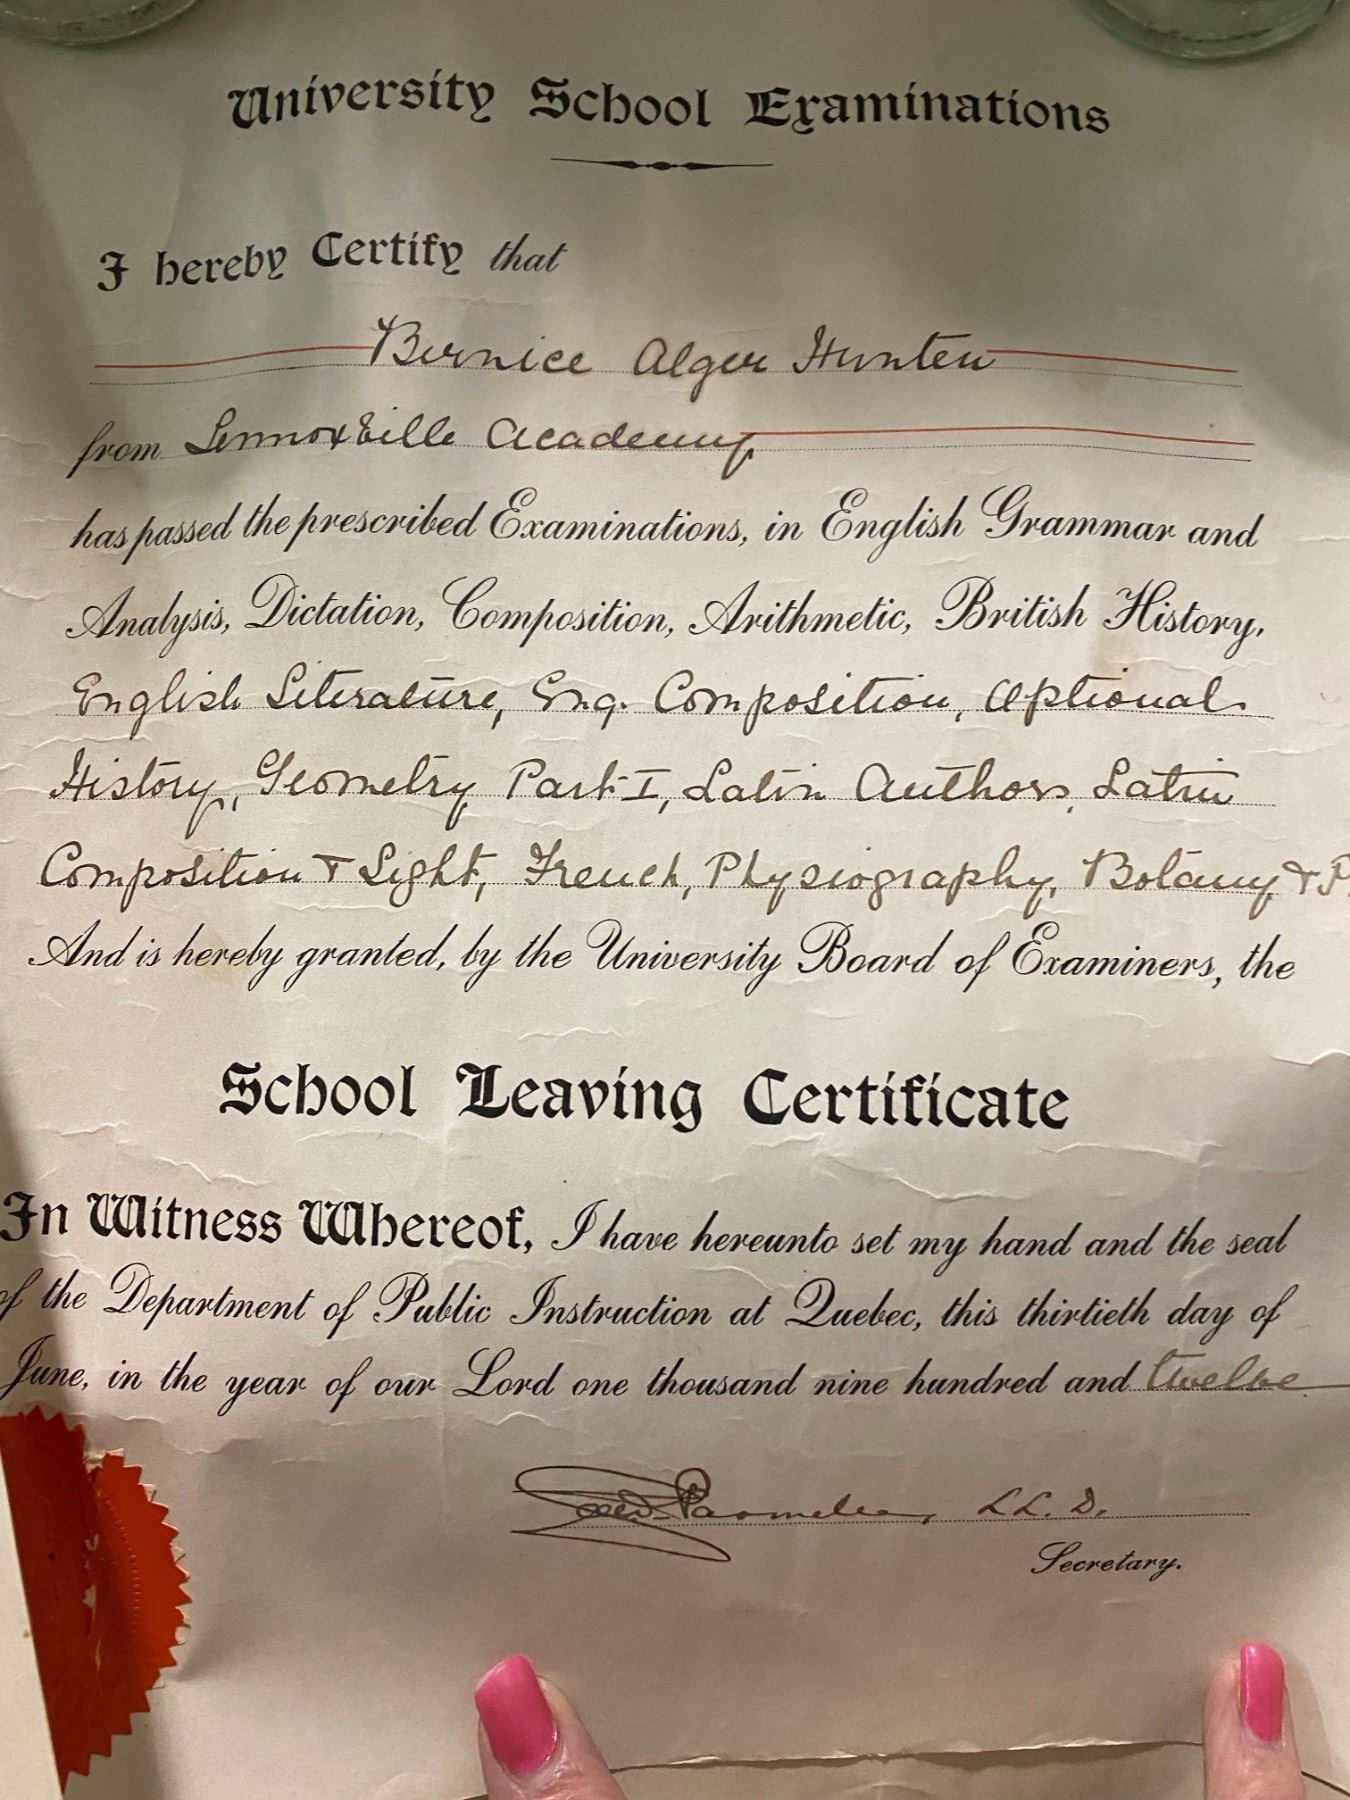 University School Examinations
I hereby Certify that
Bernice Alger Hunten
from Lennoxville Academy
has passed the prescribed Examinations, in English Grammar and
Analysis, Dictation, Composition, Arithmetic, British History,
English Literature, Eng. Composition, Optional
History, Geometry Part I, Latin Authors, Latin
Composition & Sight, French, Physiography, Botany &
And is hereby granted, by the University Board of Examiners, the
School Leaving Certificate
In Witness Whereof, I have hereunto set my hand and the seal
of the Department of Public Instruction at Quebec, this thirtieth day of
June, in the year of our Lord one thousand nine hundred and twelve
Parmelee, LL. D.
Secretary.